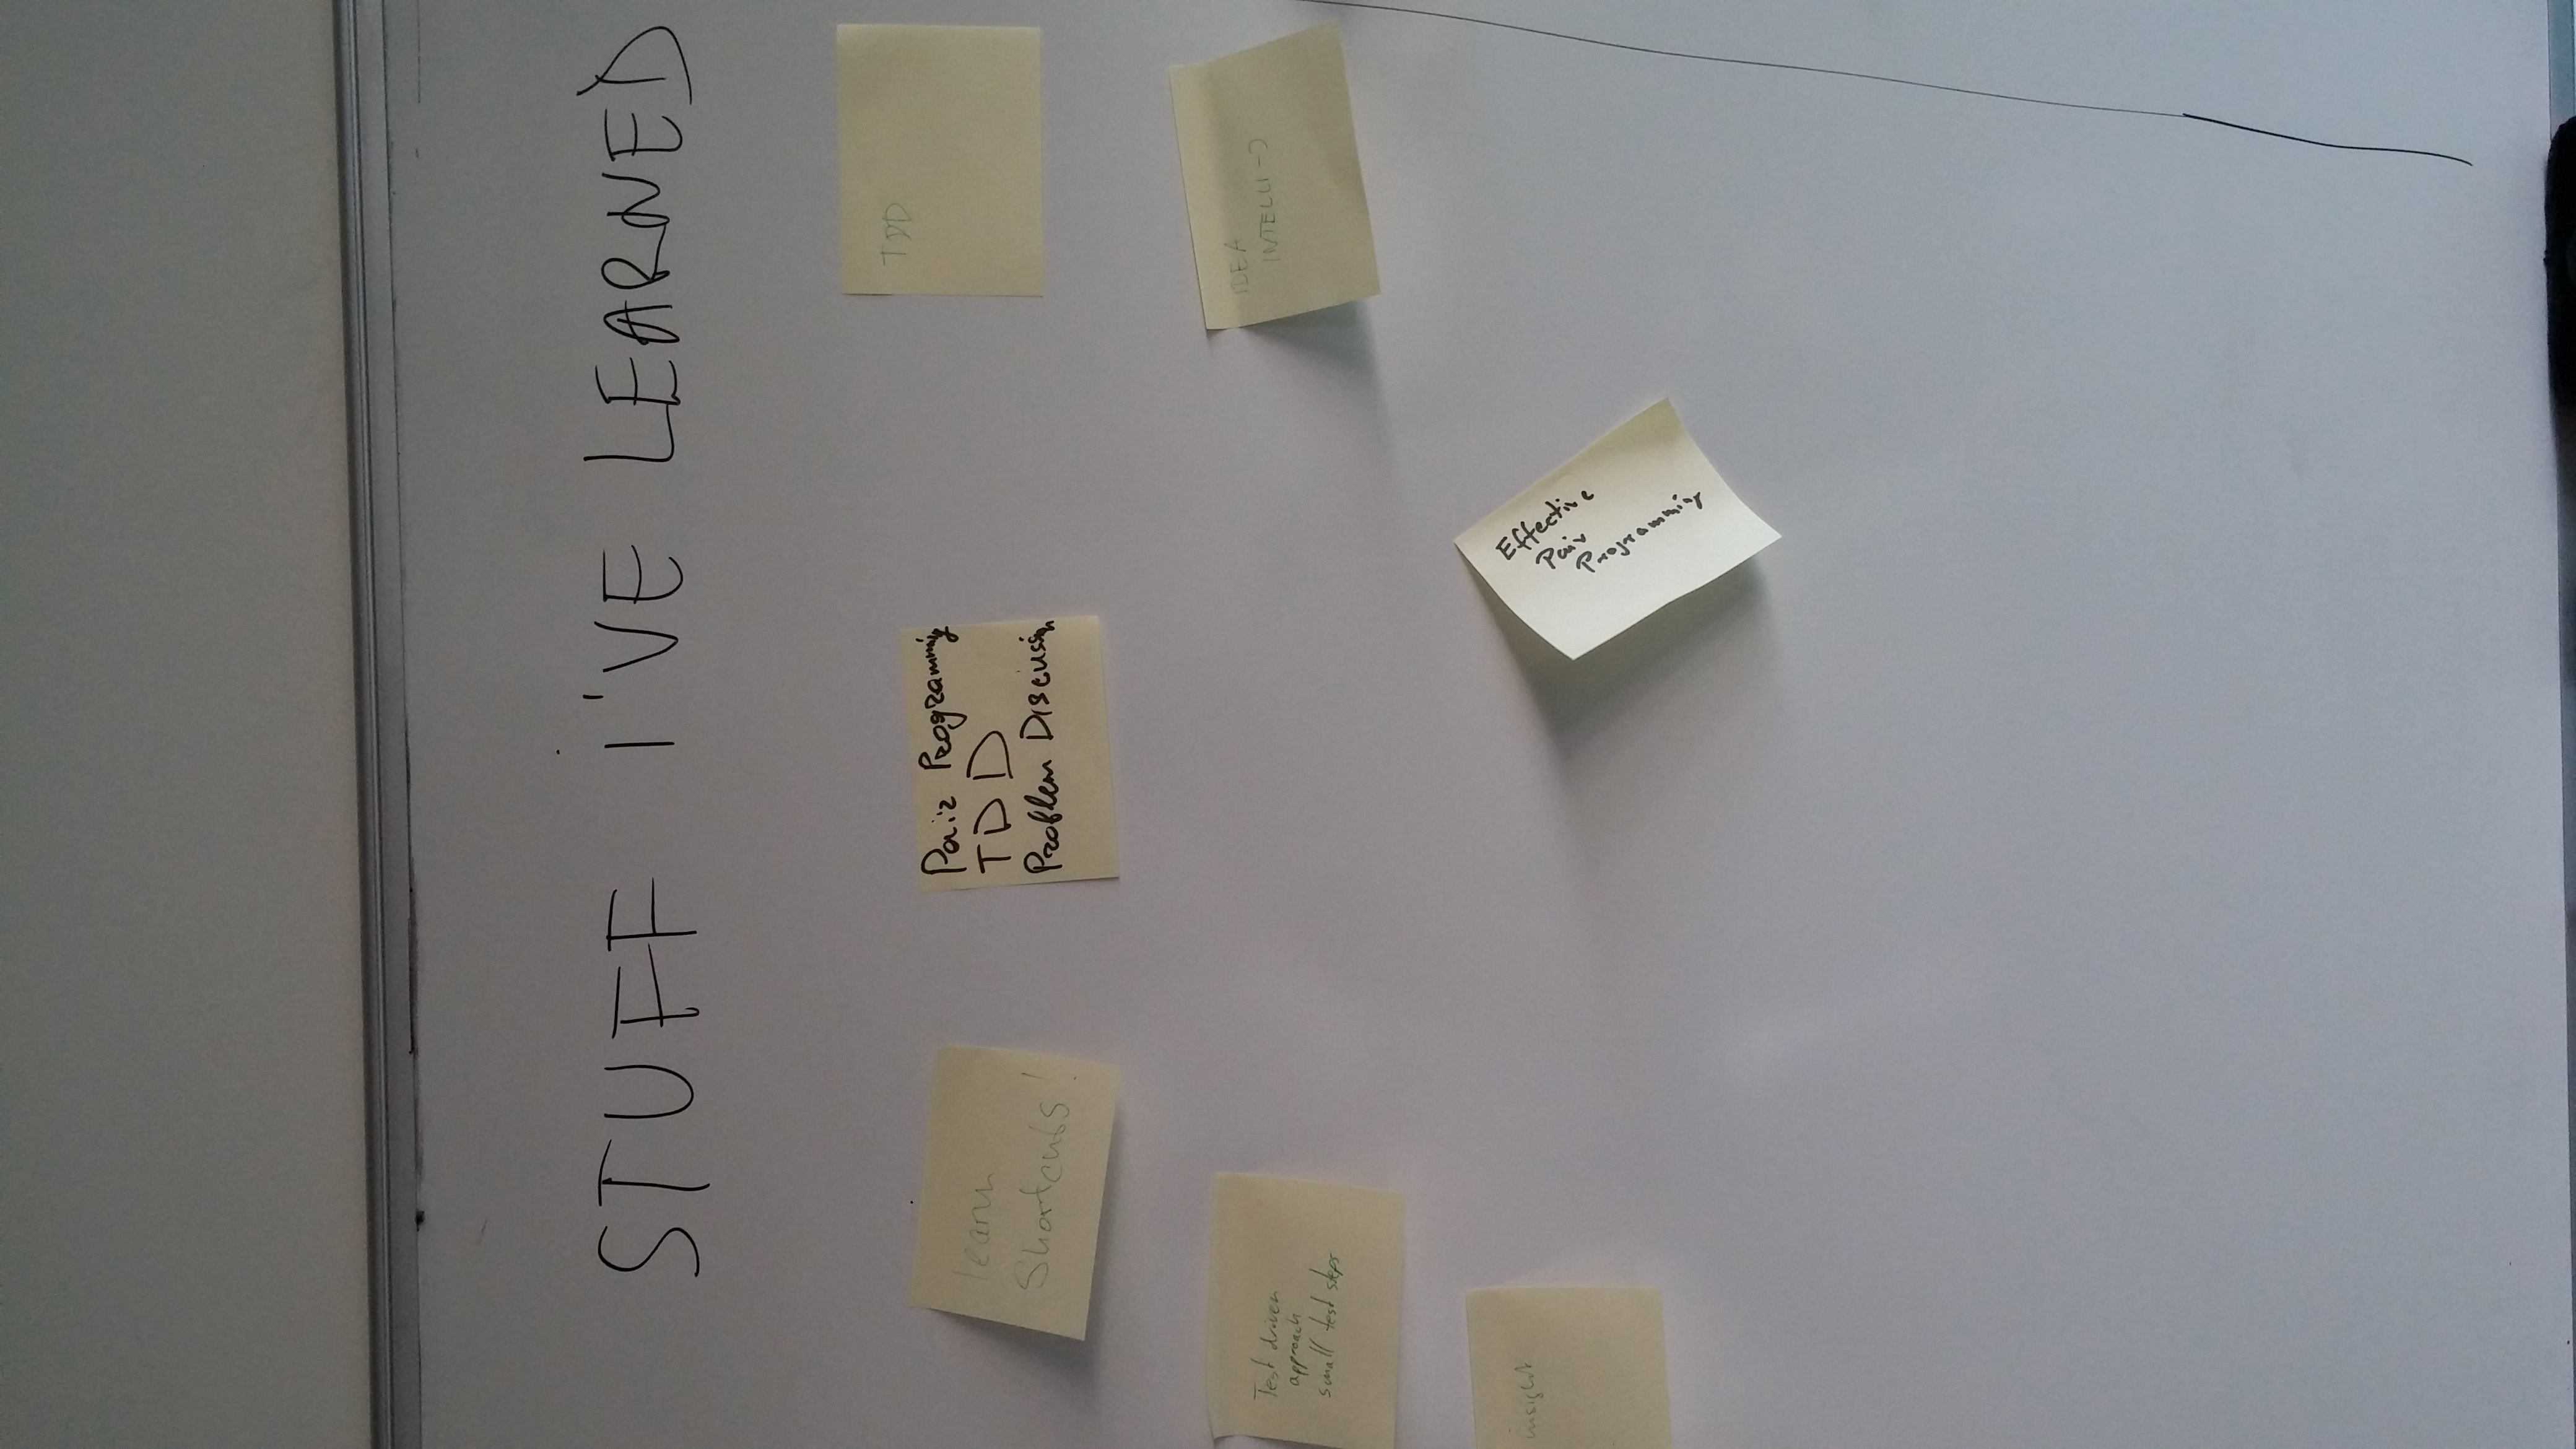 STUFF I'VE LEARNED
learn
Shortcuts!
Pair Programming
TDD
Problem Discussion
TDD
Test driven
approach
small test steps
IDEA
INTELLI-J
insight
Effective
Pair
Programming